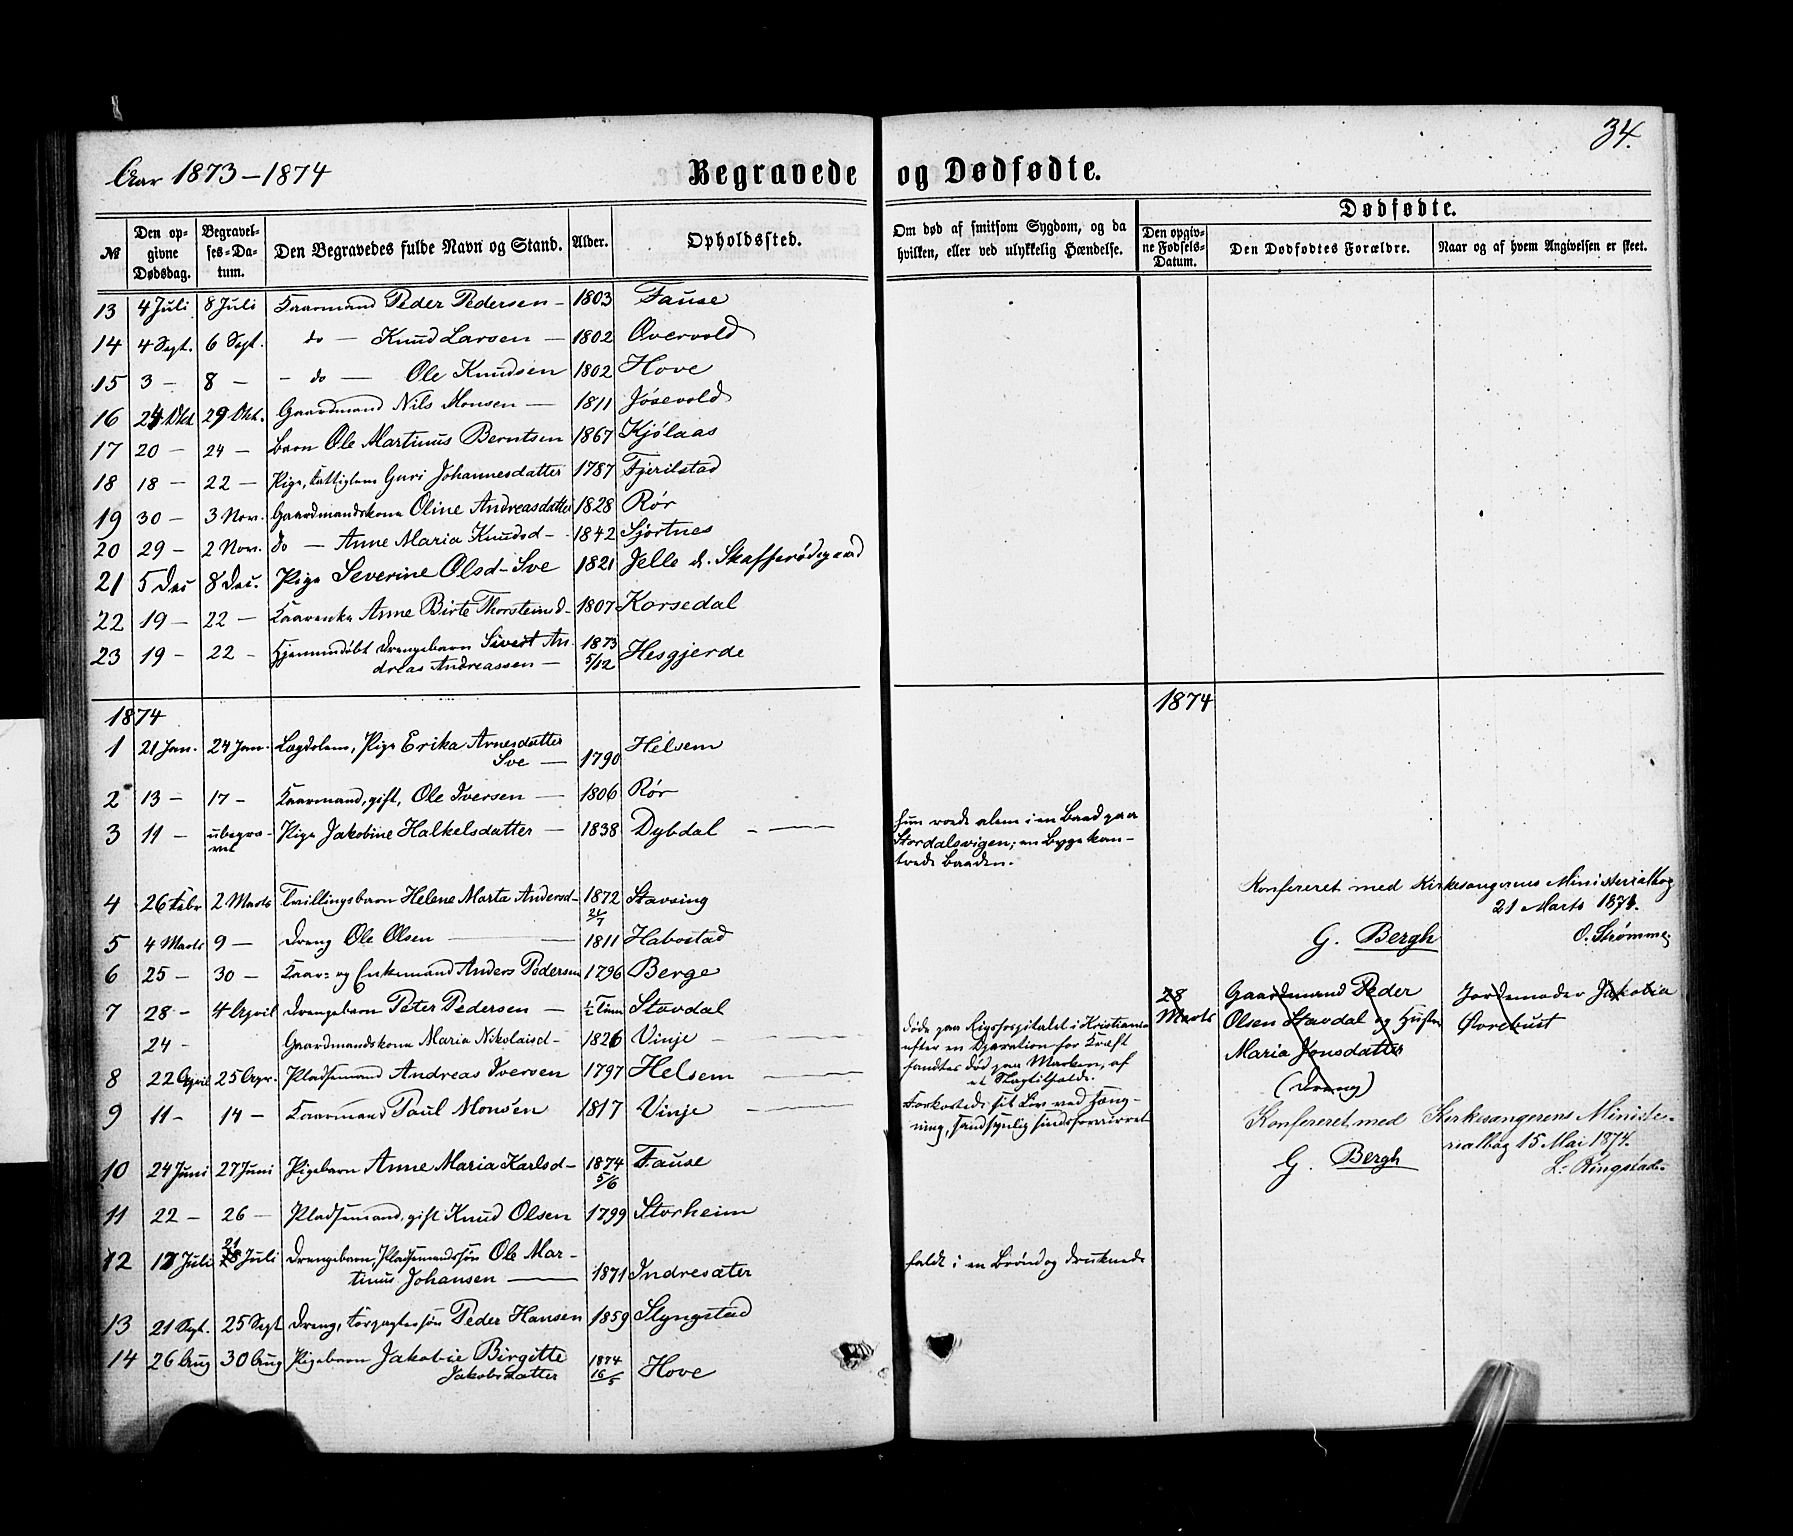 34.
Aar 1873-1874 Begravede og Dødfødte.
№ Den opgivne Dødsdag. Begravelses-Datum. Den Begravedes fulde Navn og Stand. Alder. Opholdssted. Om død af smitsom Sygdom, og da hvilken, eller ved ulykkelig Hændelse. Dødfødte. Den opgivne Fødsels-Datum. Den Dødfødtes Forældre. Naar og af hvem Angivelsen er skeet.
13 4 Juli 8 Juli Kaarmand Peder Pedersen - 1803 Fause
14 4 Sept. 6 Sept. do - Knud Larsen - 1802 Overvold
15 3 - 8 - - do - Ole Knudsen 1802 Hove
16 24 Okt 29 Okt. Gaardmand Nils Monsen - 1811 Jøsevold
17 20 - 24 - barn Ole Martinus Berntsen 1867 Kjølaas
18 18 - 22 - Pige, fattiglem Guri Johannesdatter 1787 Fjerilstad
19 30 - 3 Nov. Gaardmandskone Oline Andreasdatter 1828 Rør
20 29 - 2 Nov. do - Anne Maria Knudsd- 1842 Sjortnes
21 5 Dec 8 Dec. Pige Severine Olsd- Sve 1821 Jelle
22 19 - 22 - Kaarenke Anne Birte Thorsteinsd- 1807 Korsedal
23 19 - 22 - Hjemmedøbt Drengebarn Sivert An- 1873 Hesgjerde
dreas Andreassen - 5/12
1874 1874
1 21 Jan. 24 Jan. Lægdslem, Pige Erika Arnesdatter Helsem
Sve - 1790
2 13 - 17 - Kaarmand, gift, Ole Iversen - 1806 Rør
3 11 - ubegra- Pige Jakobine Halkelsdatter - 1838 Dybdal - hun roede alene i en Baad paa
vet Stordalsvigen; en Byge kan-
trede Baaden.
4 26 Febr 2 Marts Tvillingbarn Helene Marta Andersd- 1872 Stavseng Konfereret med Kirkesangerens Ministerialbog
21/7 21 Marts 1874.
5 4 Marts 9 - Dreng Ole Olsen - 1811 Habostad G. Bergh O. Strømme
6 25 - 30 - Kaar- og Enkemand Anders Pedersen 1796 Berge
7 28 - 4 April Drengebarn Peter Pedersen - ½ Time Stavdal 28 Marts Gaardmand Peder Jordemoder Jakobia
Olsen Stavdal og Hustru Øvrebust
Maria Jonsdatter
(Dreng)
24 - Gaardmandskone Maria Nikolaisd- 1826 Vinje - døde paa Rigshospitalet i Kristiania
efter en Operation for Kræft
8 22 April 25 Apr. Pladsemand Andreas Iversen 1797 Helsem - fandtes død paa Marken, af
et Slagtilfælde.
9 11 - 14 - Kaarmand Paul Monsen 1817 Vinje - Forkortede sit Liv ved hæng-
ning, sandsynlig sindsforvirret
Konfereret med Kirkesangerens Ministe-
rialbog 15 Mai 1874.
G. Bergh L. Ringstad
10 24 Juni 27 Juni Pigebarn Anne Maria Karlsd- 1874 Fause
5/6
11 22 - 26 - Pladsemand, gift Knud Olsen 1799 Storheim
12 17 Juli 21 Juli Drengebarn, Pladsemandssøn Ole Mar- faldt i en Brønd og druknede
tinus Johansen - 1871 Indresæter
13 21 Sept. 25 Sept Dreng, Peder Hansen 1859 Slyngstad
14 26 Aug 30 Aug Pigebarn Jakobie Birgitte 1874 Hove
Jakobsdatter 16/5